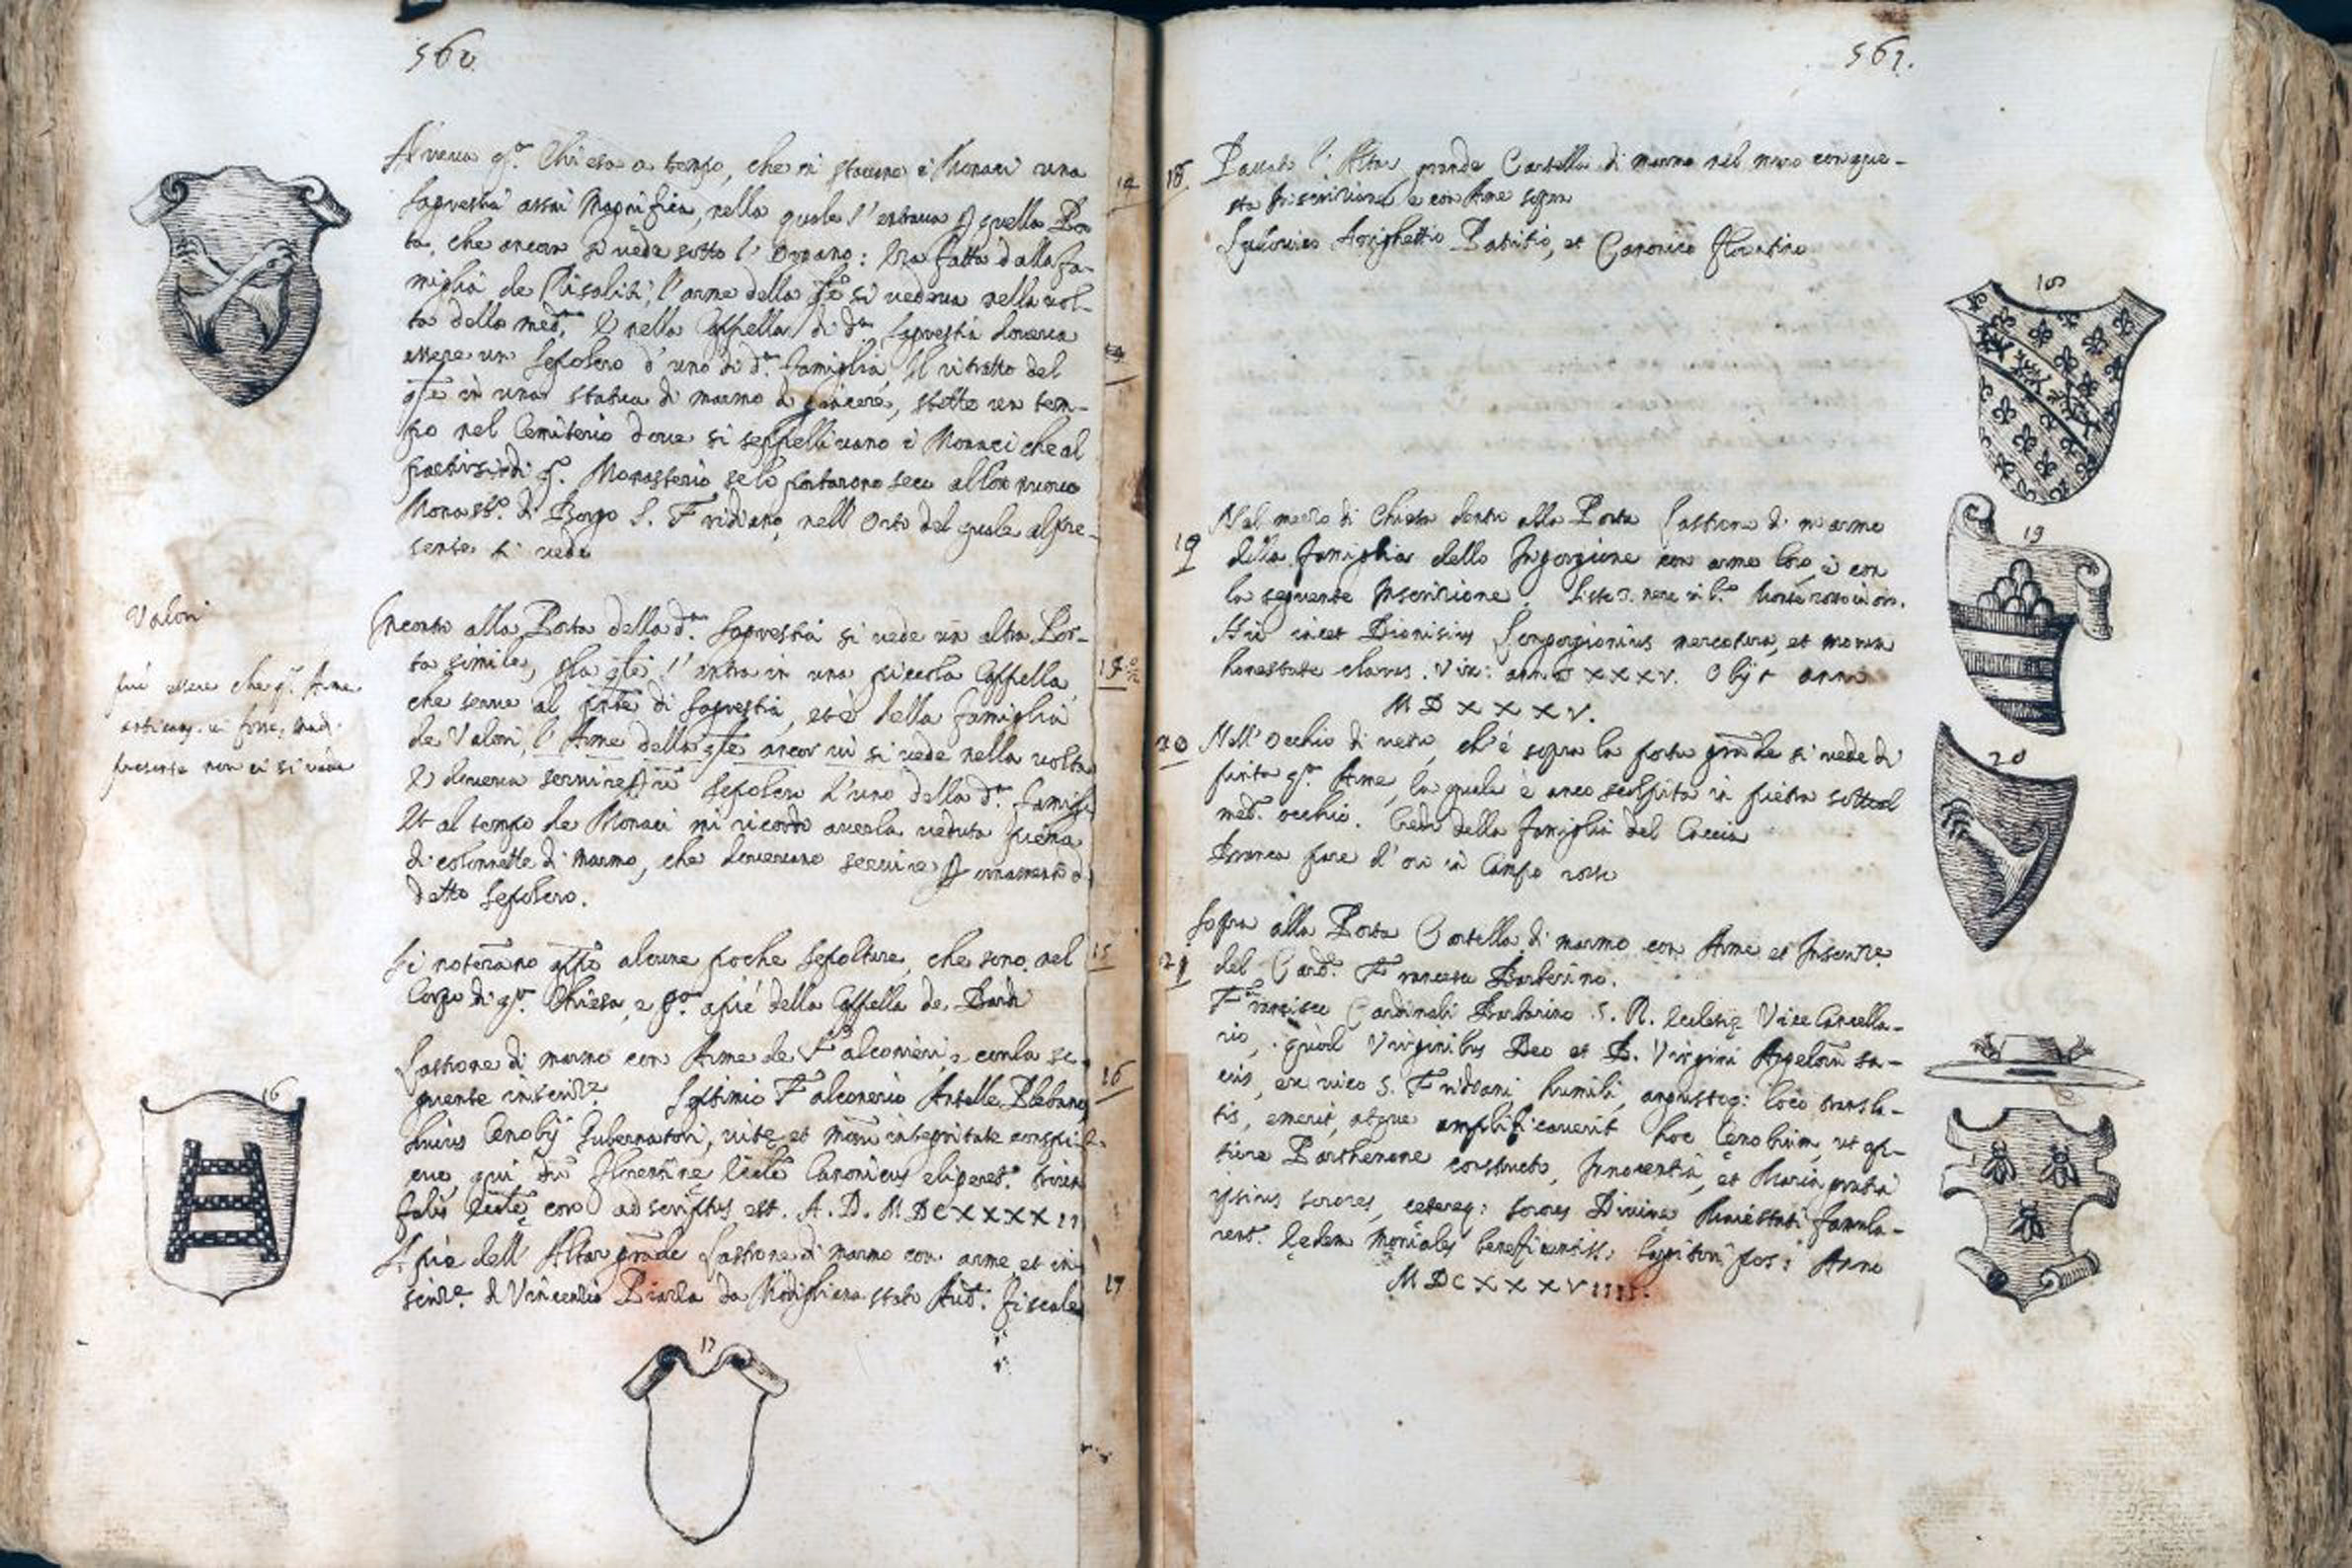 560.
Aveva q.ta Chiesa a tempo, che vi stavano i Monaci una
14
Sagrestia assai Magnifica, nella quale s'entrava p quella Por
ta, che ancor si vede sotto l'Organo: Era fatta dalla Fa-
miglia de Risaliti, l'arme della q.le si vedeva nella vol-
ta della med.ma, E nella Cappella di d.a Sagrestia doveva
essere un Sepolcro d'uno di d.a famiglia, Il ritratto del
q.le in una statua di marmo a giacere, stette un tem-
po nel Cemiterio dove si seppellivano i Monaci che al
partirsi di q. Monasterio se lo portarono seco al lor nuovo
Monast.o di Borgo S. Fridiano, nell'Orto del quale al pre-
sente si vede
Valori
può essere che q.a Arme
anticam. vi fosse, ma al
presente non ci si vede
Accanto alla Porta della d.a Sagrestia si vede un altra Por-
ta simile, p la q.le s'entra in una piccola Cappella
che serve al p.nte di Sagrestia, et è della famiglia
de Valori, l'Arme della q.le ancor vi si vede nella volta
E doveva servire p un Sepolcro d'uno della d.a famigl.
Et al tempo de Monaci mi ricordo averla veduta piena
di colonnette di Marmo, che dovevano servire p ornamento d.
detto Sepolcro.
15
Si noteranno app.o alcune poche sepolture, che sono nel
Corpo di q.ta Chiesa, e p.a a piè della Cappella de Bardi
16
Lastrone di marmo con Arme de Falconieri, e con la se-
guente inscriz.e Septimio Falconerio Antelle Plebano
huius Cenobij Gubernatori, vite et morum integritate conspi
cuo, qui dum Florentine Eccle Canonicus eligeret.
falis Eccle coro adscriptus est. A. D. MDCXXXXII
17
A piè dell'Altar grande Lastrone di marmo con arme et in
scriz.e di Vincenzio da Modigliana stato Aud. fiscale
16
17
561.
18. Passato l'Altar grande Cartella di marmo nel muro con que-
sta Inscrizione e con Arme sopra
Ludovico Arrighettio Patritio, et Canonico Florentino
18
19
Nel mezzo di Chiesa dentro alla Porta Lastrone di marmo
della famiglia dello Ingorgione con arme loro, e con
la seguente Inscrizione. Liste 3. nere in b.o Monte rosso in oro.
Hic iacet Dionisius Longorgionius mercatura, et morum
honestate clarus. Vix: annos XXXV. Obijt anno
MDXXXV.
19
20
Nell'Occhio di vetro, ch'è sopra la porta grande si vede di
pinta q.ta Arme, la quale è anco scolpita in pietra sotto al
med. occhio. Credo della famiglia del Caccia
Branca pare d'oro in Campo rosso
20
21
Sopra alla Porta Cartella di marmo con Arme et Inscriz.e
del Card. Francesco Barberino.
Francisco Cardinali Barberino S. R. Ecclesię Vice Cancella-
rio, quod Virginibus Deo et B. Virgini Angelorum sa-
cris, ex vico S. Fridiani humili, angustoq: loco transla-
tis, emerit, atque amplificaverit hoc Cenobium, ut op-
timo Parthenone constructo, Innocentia, et Maria gratia
ipsius sorores, ceteręq: sorores Divine Maiestati famula-
rent. Eędem Moniales beneficentiss: pos: Anno
MDCXXXVIIII.